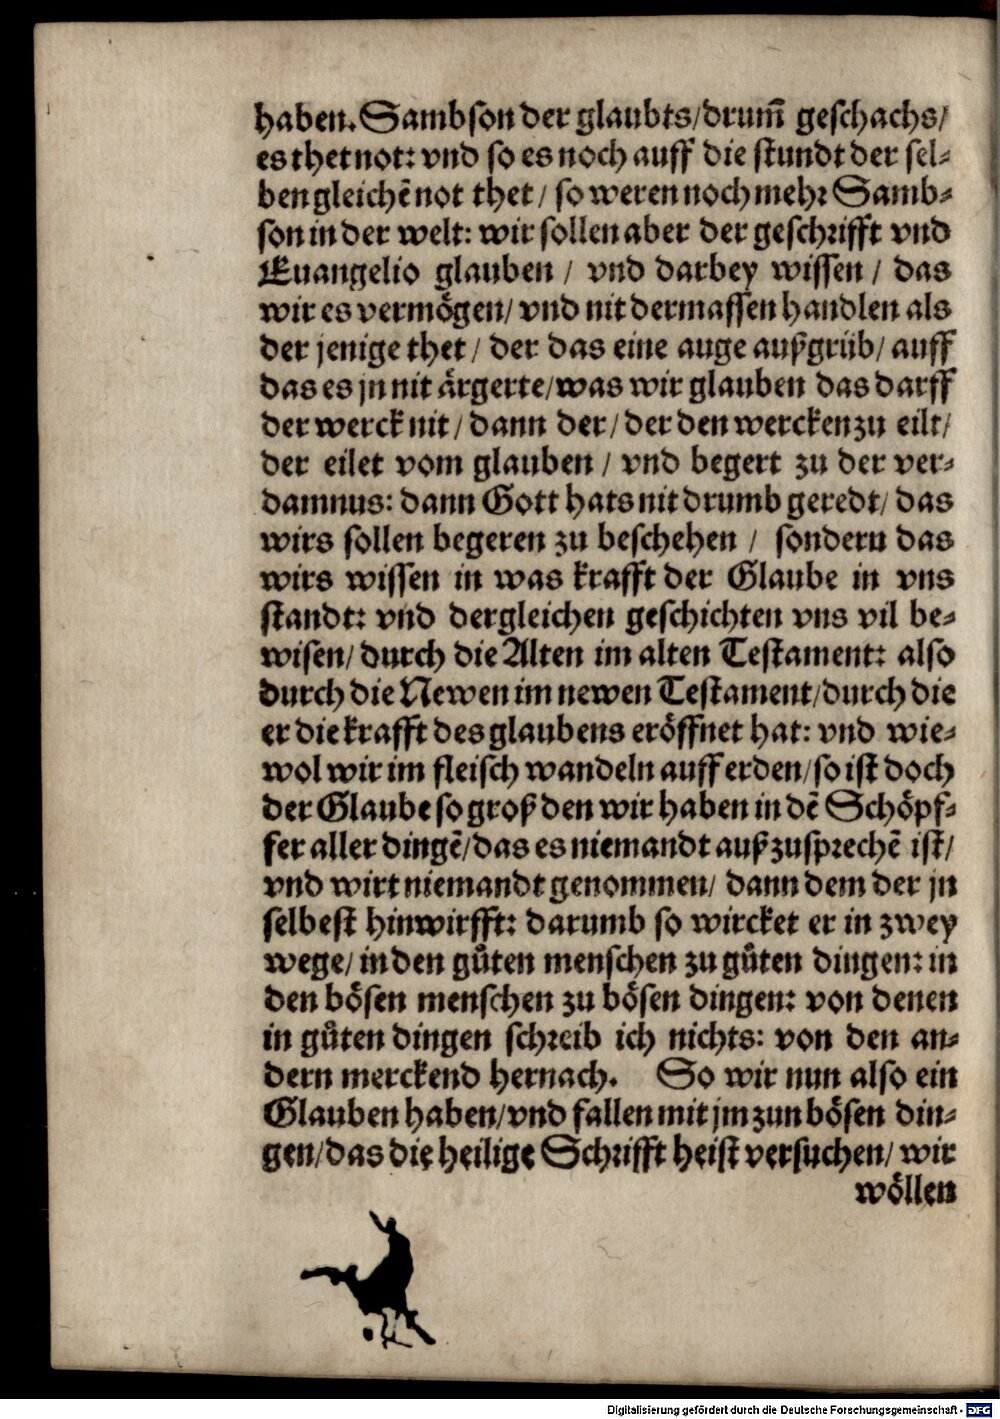 haben. Sambson der glaubts/drum̃ geschachs/
es thet not: vnd so es noch auff die stundt der sel⸗
ben gleichẽ not thet / so weren noch mehr Samb⸗
son in der welt: wir sollen aber der geschrifft vnd
Euangelio glauben / vnd darbey wissen / das
wir es vermögen/ vnd nit dermassen handlen als
der jenige thet / der das eine auge außgrüb/ auff
das es jn nit ärgerte/was wir glauben das darff
der werck nit / dann der/ der den wercken zu eilt/
der eilet vom glauben / vnd begert zu der ver⸗
damnus: dann Gott hats nit drumb geredt/ das
wirs sollen begeren zu beschehen / sondern das
wirs wissen in was krafft der Glaube in vns
standt: vnd dergleichen geschichten vns vil be⸗
wisen/ durch die Alten im alten Testament: also
durch die Newen im newen Testament/durch die
er die krafft des glaubens eröffnet hat: vnd wie⸗
wol wir im fleisch wandeln auff erden/so ist doch
der Glaube so groß den wir haben in dẽ Schöpf⸗
fer aller dingẽ/das es niemandt auß zusprechẽ ist/
vnd wirt niemandt genommen/ dann dem der jn
selbest hinwirfft: darumb so wircket er in zwey
wege/ in den gůten menschen zu gůten dingen: in
den bösen menschen zu bösen dingen: von denen
in gůten dingen schreib ich nichts: von den an⸗
dern merckend hernach. So wir nun also ein
Glauben haben/vnd fallen mit jm zun bösen din⸗
gen/das die heilige Schrifft heist versuchen/ wir
wöllen
Digitalisierung gefördert durch die Deutsche Forschungsgemeinschaft - DFG